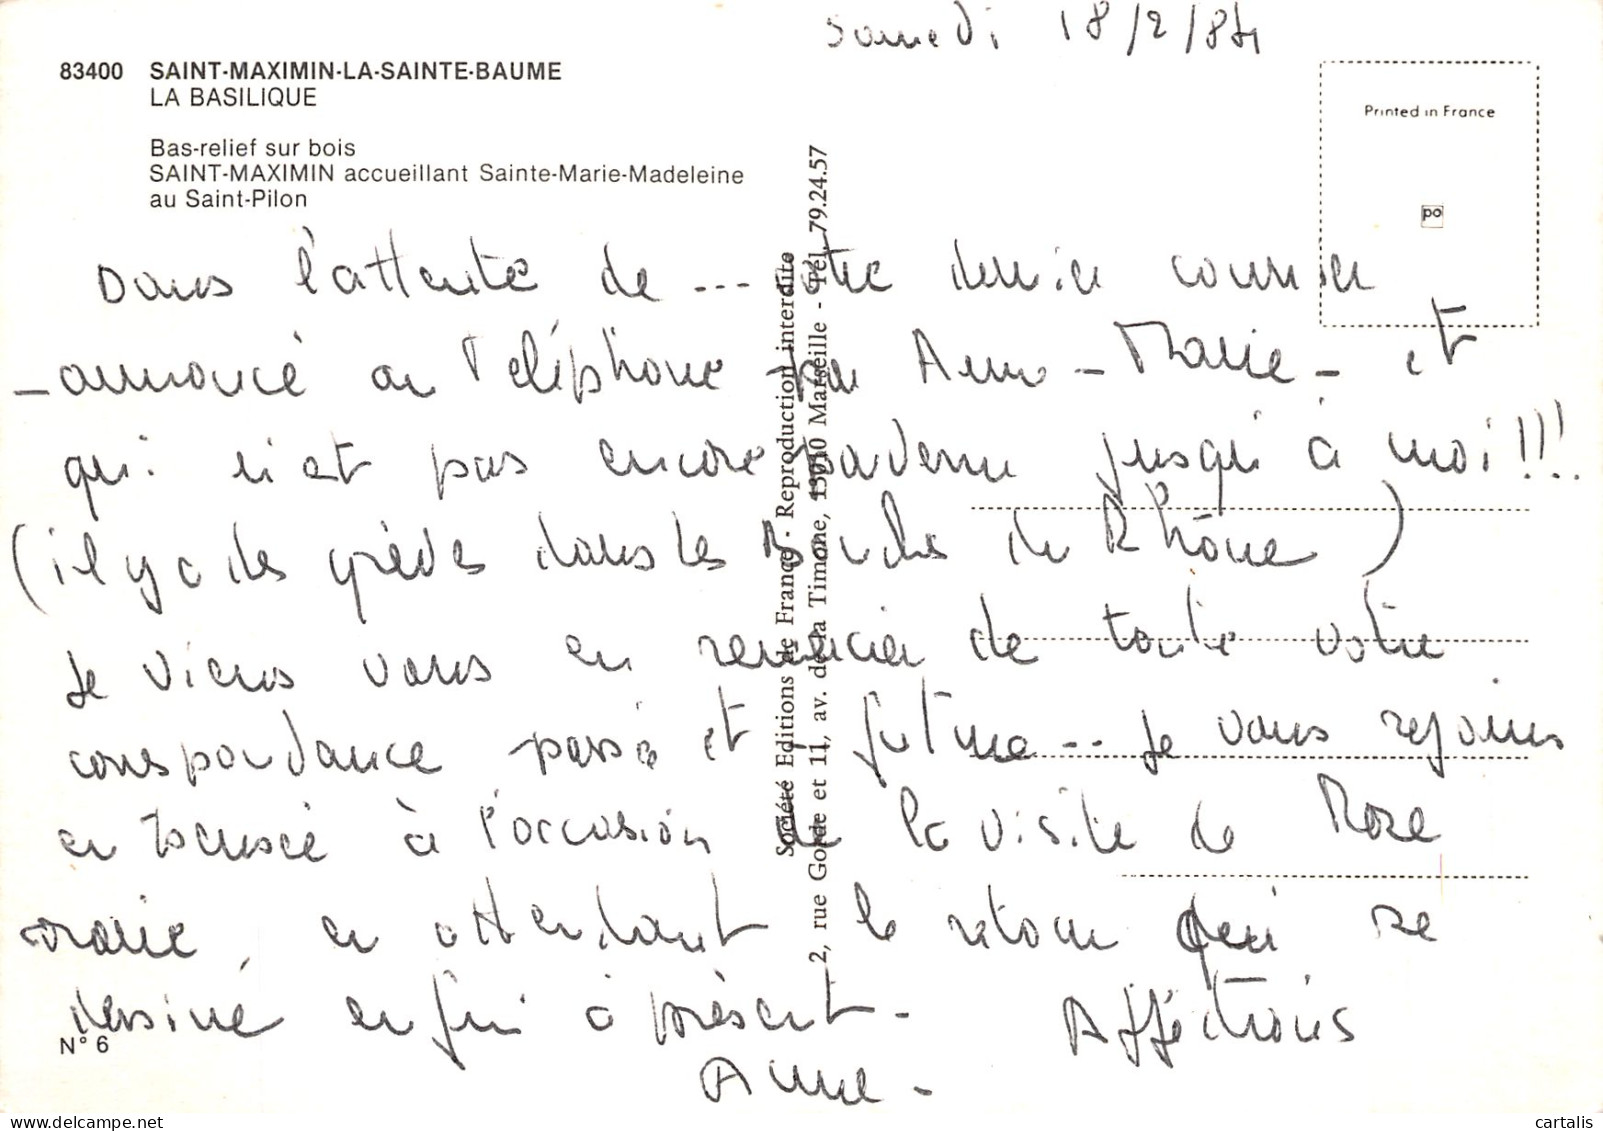 Samedi 18/2/84
83400 SAINT-MAXIMIN-LA-SAINTE-BAUME
LA BASILIQUE
Bas-relief sur bois
SAINT-MAXIMIN accueillant Sainte-Marie-Madeleine
au Saint-Pilon
Printed in France
po
Dans l'attente de ... votre dernier courrier
- annoncé au Téléphone par Anne-Marie - et
qui n'est pas encore parvenu jusqu'à moi !!!
(il y a des grèves dans les Bouches du Rhône)
Je viens vous en remercier de toute votre
correspondance passée et future... Je vous rejoins
en pensée à l'occasion de la visite de Rose
Marie, en attendant le retour qui se
dessine enfin à présent -
Affections
Anne -
N° 6
Société Editions de France - Reproduction interdite
2, rue Gorde et 11, av. de la Timone, 13010 Marseille - Tél. 79.24.57
cartalis